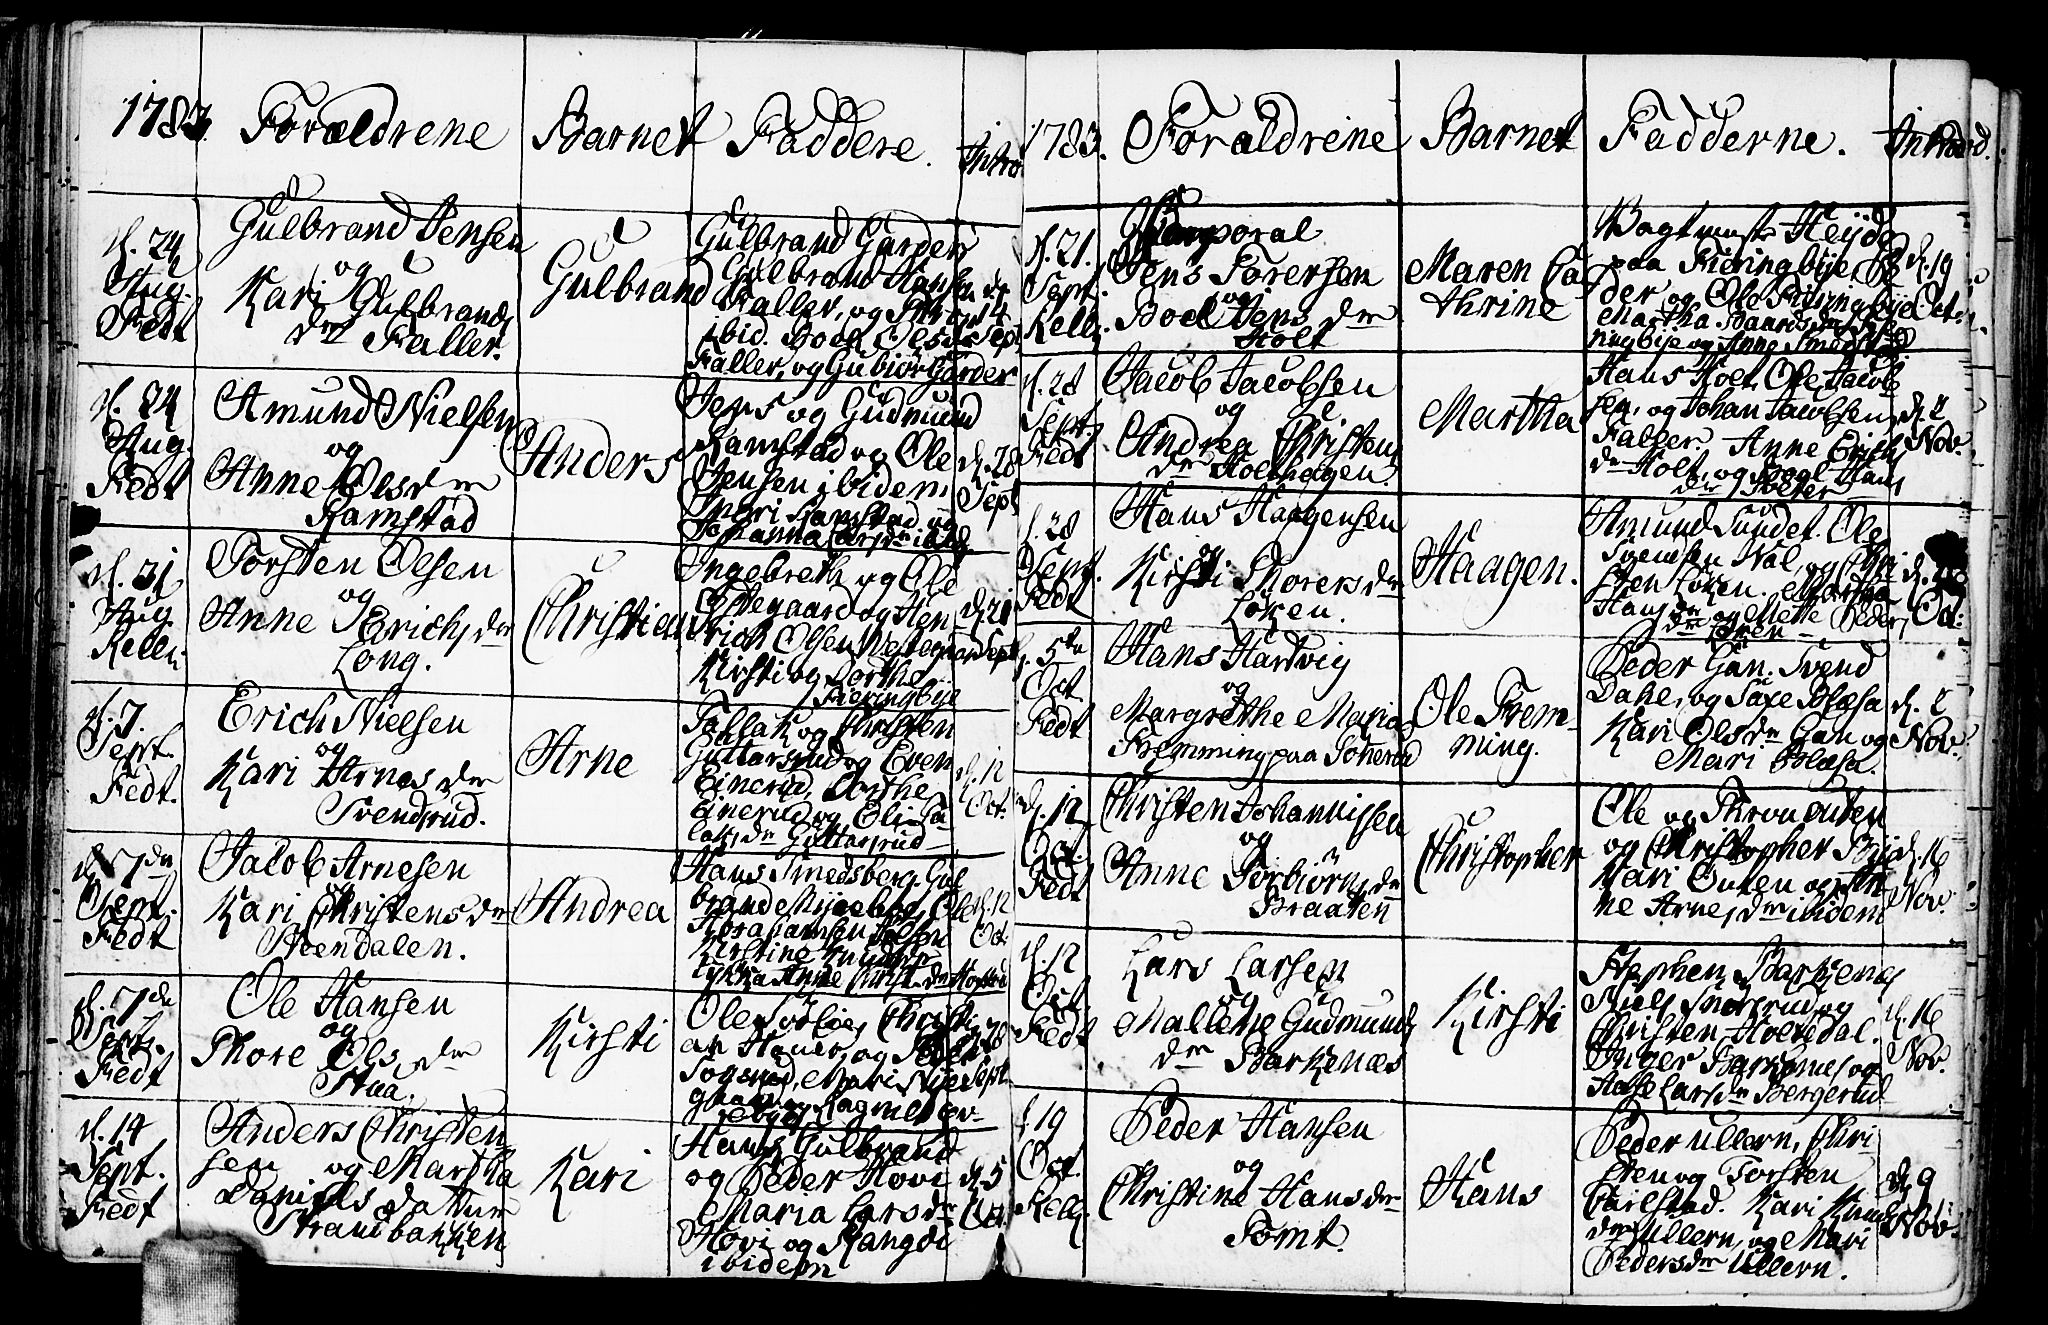 1783. Forældrene Barnet Faddere. Intro
d. 24
Aug.
Fedt
Gulbrand Jensen
og
Kari Gulbrands
dr Faller.
Gulbrand
Gulbrand Garder
Gulbrand Hansen
Faller, og
ibid. Boel Olsdr
Faller, og Gubiør Garder
d.
14
Sept
d. 24
Aug.
Fedt
Amund Nielsen
og
Anne Olsdr
Ramstad
Anders
Jens og Gudmund
Ramstad og Ole
Jensen ibidem
Ingri Ramstad og
Johanna Larsdr ibid.
d. 28
Sept
d. 31
Aug.
Kelli.
Torsten Olsen
og
Anne Erichsdr
Long.
Christian
Ingebreth og Ole
Østegaard og Hen
Erich Olsen Westegaard
Kirsti og Dorthe
Fieringbye
d. 21
Sept
d. 7.
Sept.
Fedt.
Erich Nielsen
og
Kari Arnesdr
Svendsrud.
Arne
Tallak og Christen
Guttarsrud og Even
Einerud, Dorthe
Einerud og Eli Ta
laksdr Guttarsrud
d. 12
Oct.
d. 7de
Sept.
Fedt
Jacob Arnesen
og
Kari Christensdr
Steendalen.
Andrea
Hans Smedsberg. Gul
brand Myreeber, Ole
Abrahamsen
Kirstine Knudsdr
Lykka Anne Christ.dr
d. 12
Oct.
d. 7de
Sept.
Fedt
Ole Hansen
og
Thore Olsdr
Haa.
Kirsti
Ole Christi
an Hauer, og Peder
Togsrud, Mari Nye
gaard og Ragnild
d. 28
Sept
d. 14
Sept.
Fedt
Anders Christen
sen og Martha
Daniels datter
Strandbakken
Kari
Hans Gulbrand
og Peder Hovi
Maria Larsdr
Hovi og Rangdi
ibidem
d. 5
Oct.
1783. Forældrene Barnet Fadderne. Introd.
d. 21.
Sept.
Kelli.
Corporal
Jens Torersen
og
Boel Jensdr
Holt
Maren Ca
thrine
Vagtmest. Heyde
paa Fieringbye, Pe
der og Ole Fieringbye
Martha Baardsdr Fie
ringbye og Anne Smedst
d. 19
Oct.
d. 28
Sept.
Fedt
Jacob Jacobsen
og
Andrea Christens
dr Holthagen
Martha
Hans Holt, Ole Jacob
sen, og Johan Jacobsen
Faller Anne Erichs
dr Holt, og Hans
dr
d. 2
Nov.
d. 28
Sept.
Fedt
Hans Haagensen
og
Kirsti Thorersdr
Løken.
Haagen.
Amund Sundet. Ole
Svensen Nal, og Chri
sten Løken. Martha
Hansdr og Mette Peders
dr Løken
d.
Oct.
d. 5te
Oct.
Fedt
Hans Hartvig
og
Margrethe Maria
Fremming paa Tonerud
Ole Frem
ming.
Peder Gan. Svend
Dahl, og Saxe Blæsa
Kari Olsdr Gan og
Mari Blæsa.
d. 2
Nov.
d. 12
Oct.
Fedt
Christen Johannissen
og
Anne Torbiørnsdr
Braaten
Christopher
Ole og Thron Outen
og Christopher Bye
Kari Outen og An
ne Arnesdr ibidem
d. 16
Nov.
d. 12
Oct.
Fedt
Lars Larsen
og
Mallene Gudmunds
dr Barkenæs
Kirsti
Stephen Barkenes
Niels Snorsrud og
Christen Holtedal.
Inger Barkenes og
Aase Larsdr Bergerud
d. 16
Nov.
d. 19
Oct.
Kelli.
Peder Hansen
og
Christine Hansdr
Tomt.
Hans
Peder Ullern, Chri
sten og Torsten
Carlstad. Kari Knuds
dr Ullern, og Mari
Pedersdr Ullern.
d. 9
Nov.